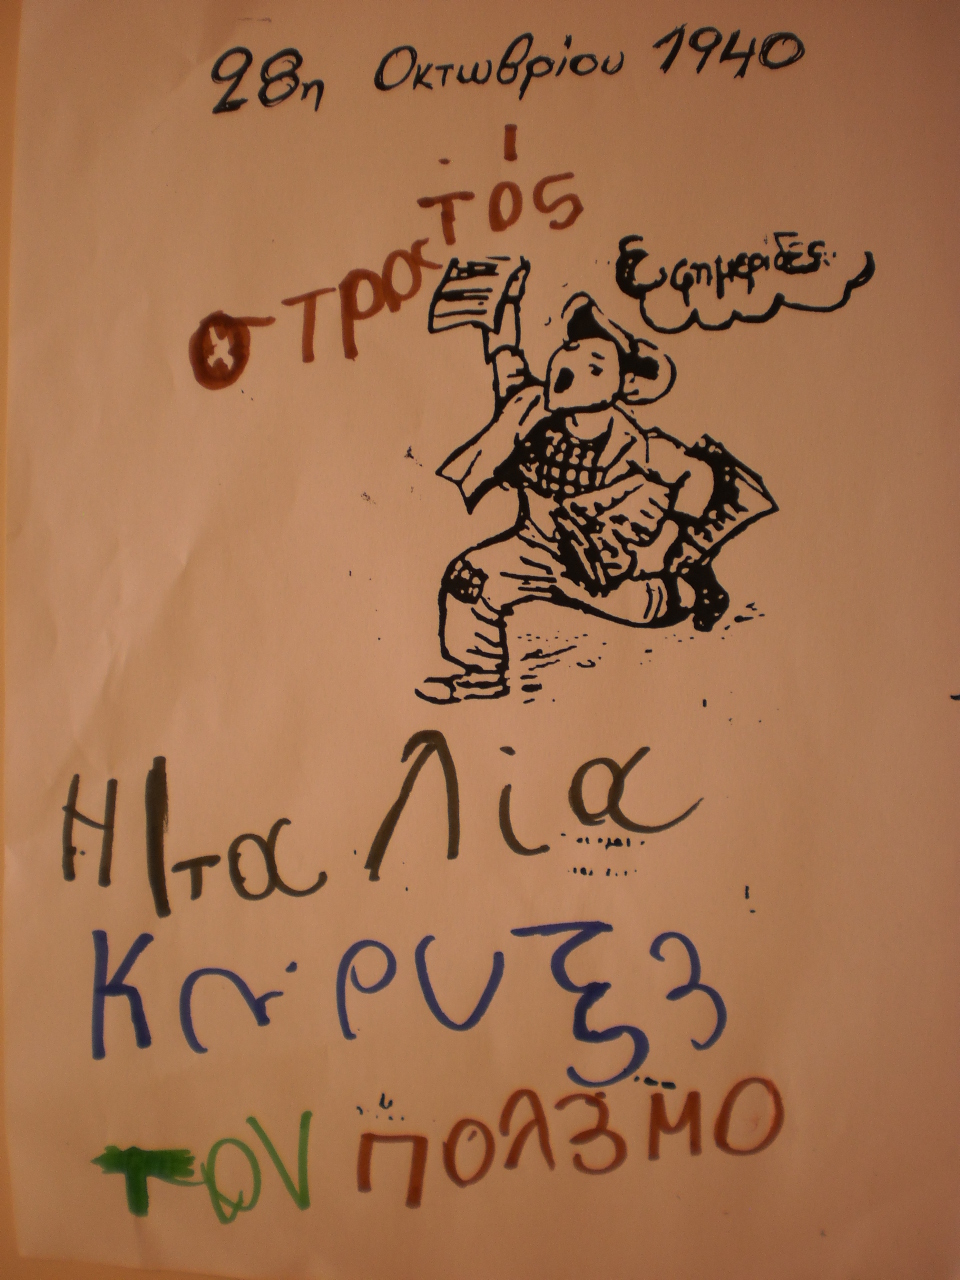 28η Οκτωβρίου 1940
στρατός
Εφημερίδες
Η Ιταλία
Κήρυξε
τον πολεμο